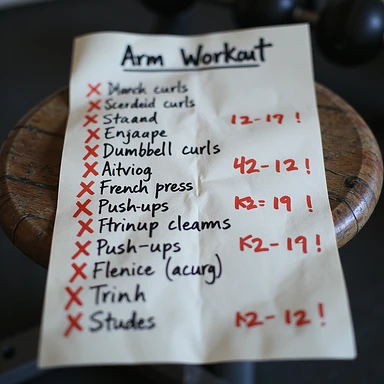 Arm Workout
× Dlanch curls
× Scerdeid curls
× Staand 12-17 !
× Enjaape
× Dumbbell curls
× Aitviog 42-12 !
× French press
× Push-ups K2= 19 !
× Ftrinup cleamns
× Push-ups K2-19 !
× Flenice (acurg)
× Trinh
× Studes 12-12 !